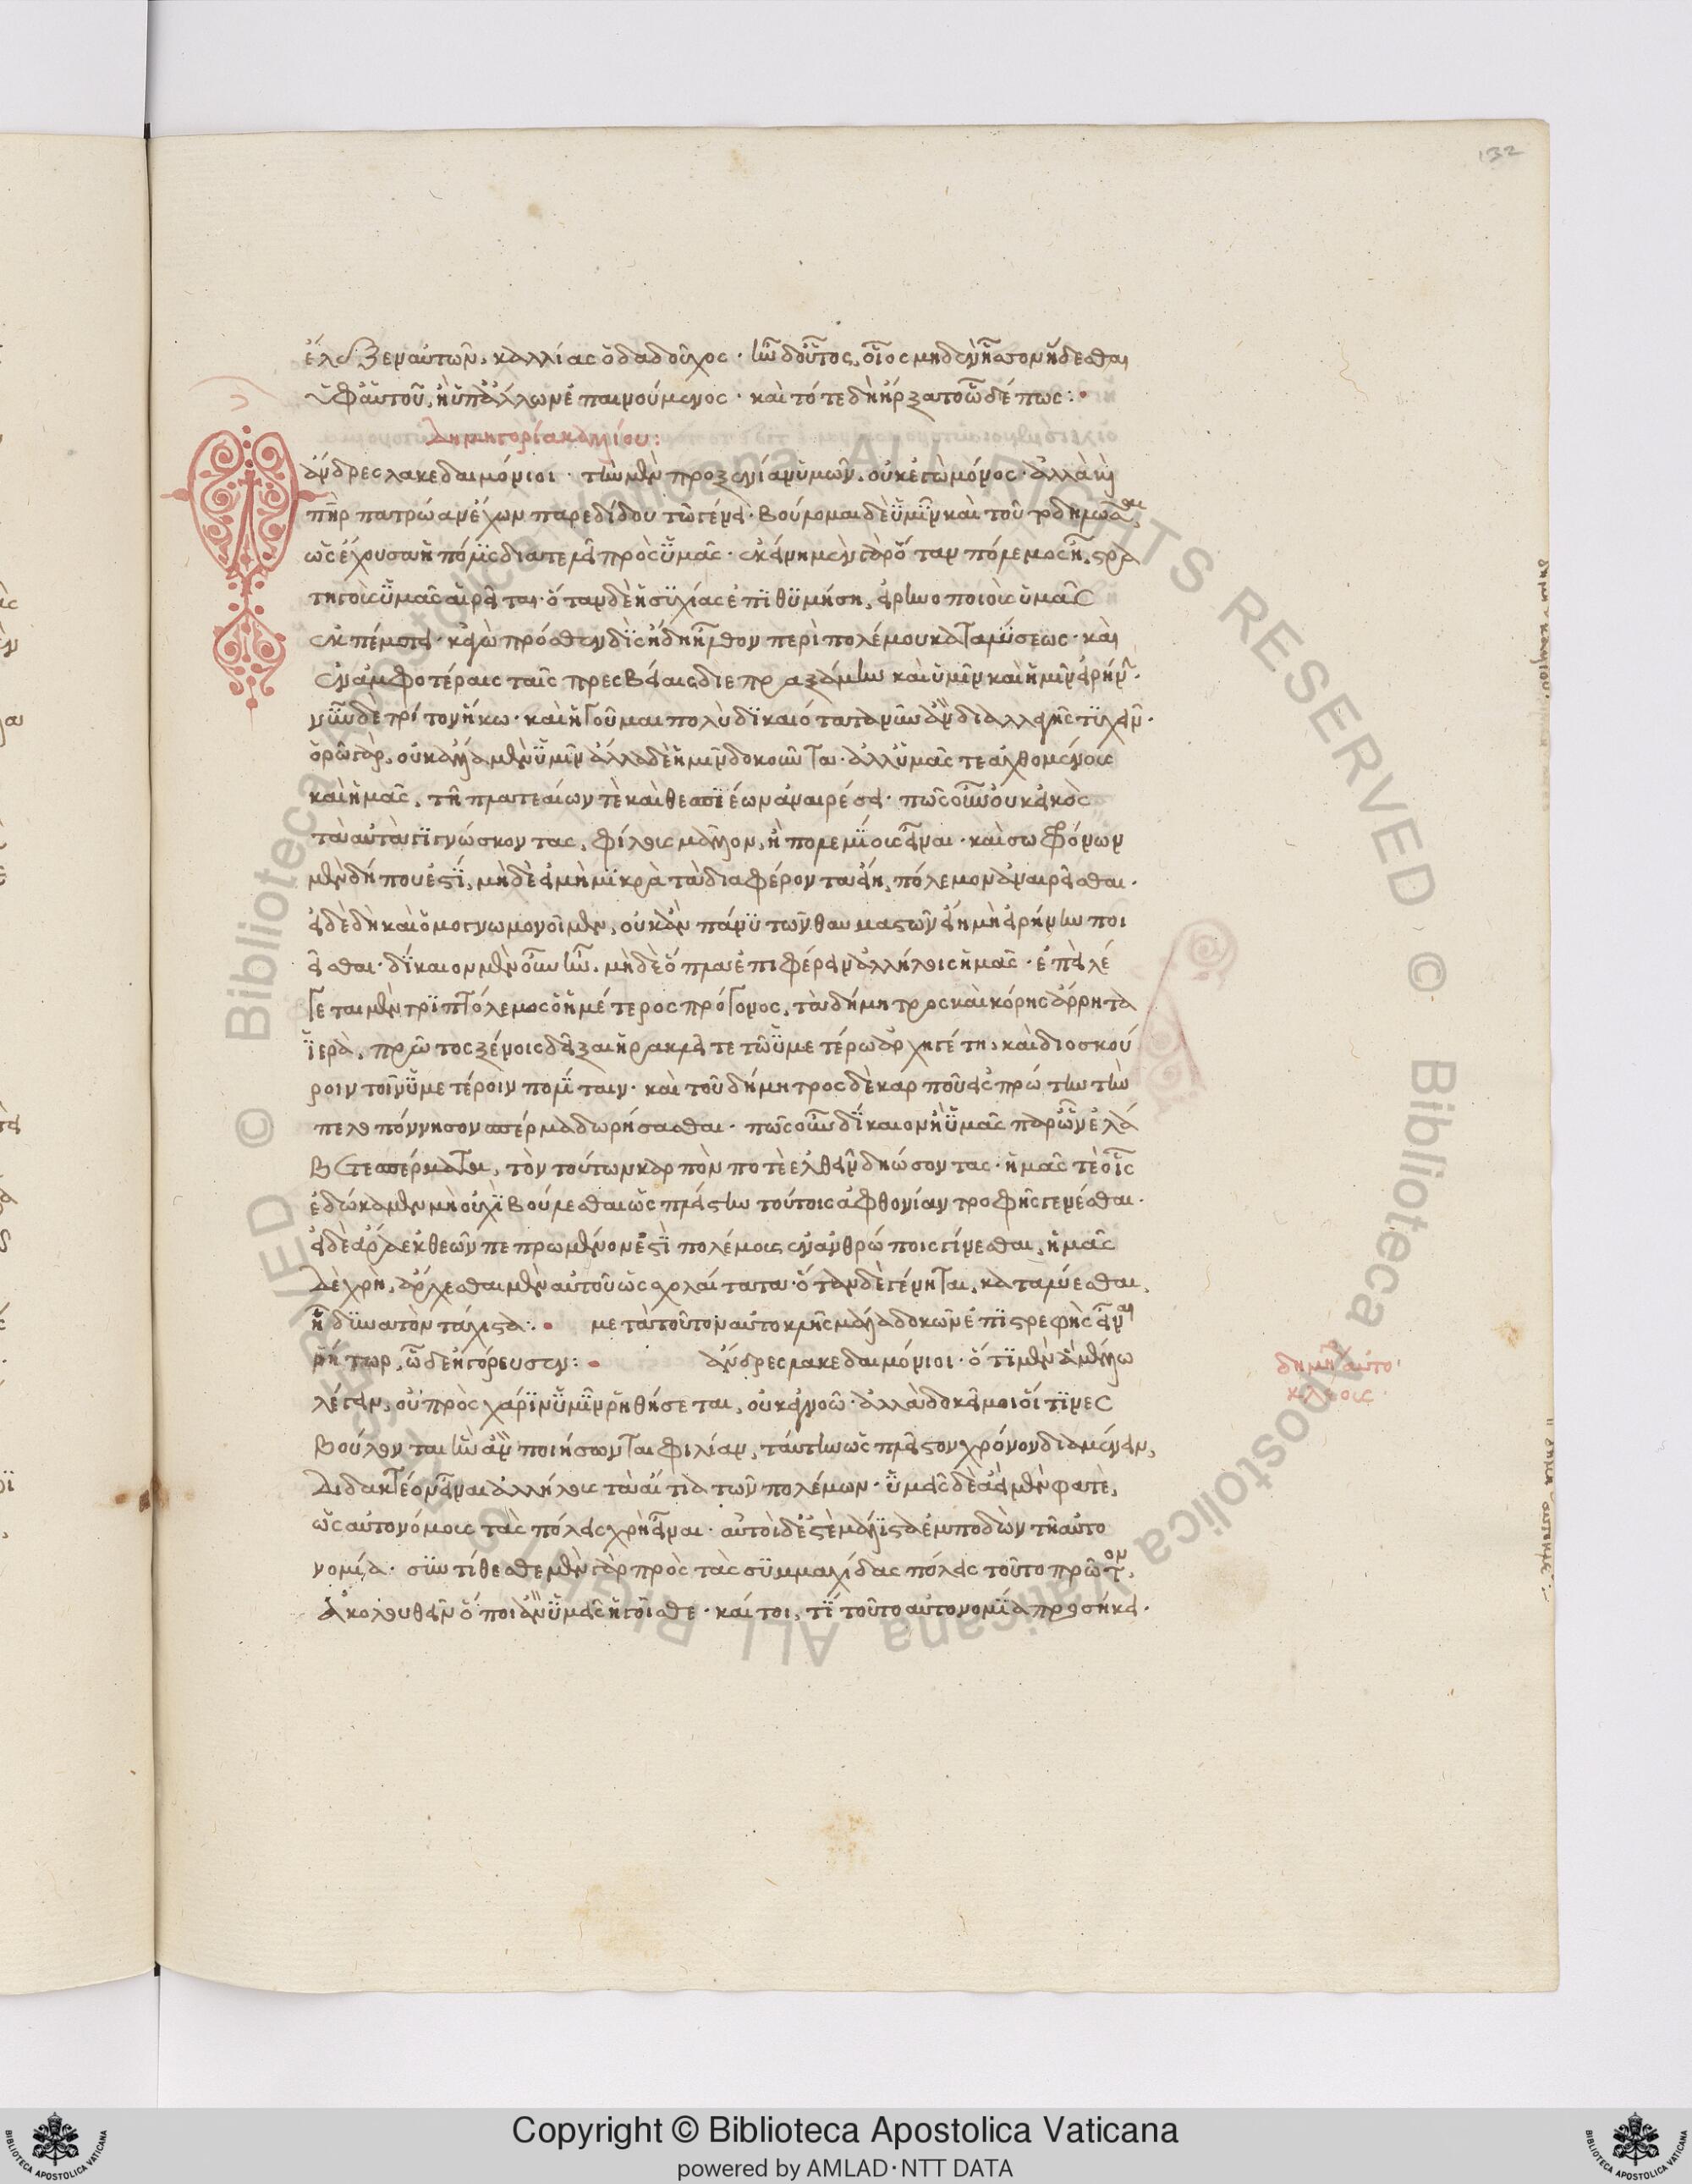 132
ἔλεξεν αὐτῶν καλλίας ὁ δαδοῦχος· ἦν δ' οὗτος, οἷος μηδὲν ἧττον ἥδεσθαι
ὑφ' αὑτοῦ, ἢ ὑπ' ἄλλων ἐπαινούμενος· καὶ τότε δὴ ἤρξατο ὧδέ πως:
δημηγορία καλλίου:
ἄνδρες λακεδαιμόνιοι· τὴν μὲν προξενίαν ὑμῶν, οὐκ ἐγὼ μόνος· ἀλλὰ καὶ
πατρῷαν ἔχων παρεδίδου τῷ γένει· βούλομαι δὲ ὑμῖν καὶ τοῦτο δηλῶσαι,
ὡς ἔχουσα ἡ πόλις διατελεῖ πρὸς ὑμᾶς· ἐκείνη μὲν γὰρ ὅταν πόλεμος ᾖ, στρα
τηγοὺς ὑμᾶς αἱρεῖται· ὅταν δὲ ἡσυχίας ἐπιθυμήσῃ, εἰρηνοποιοὺς ὑμᾶς
ἐκπέμπει· κἀγὼ πρόσθεν δὶς ἤδη ἦλθον περὶ πολέμου καταλύσεως· καὶ
ἐν ἀμφοτέραις ταῖς πρεσβείαις διεπραξάμην καὶ ὑμῖν καὶ ἡμῖν εἰρήνην·
νῦν δὲ τρίτον ἥκω· καὶ ἡγοῦμαι πολὺ δικαιότατα νῦν ἂν διαλλαγῆς τυχεῖν·
ὁρῶ γὰρ, οὐκ ἄλλα μὲν ὑμῖν ἄλλα δὲ ἡμῖν δοκοῦντα· ἀλλ' ὑμᾶς τε ἀχθομένους
καὶ ἡμᾶς, τῇ πλαταιῶν τὲ καὶ θεσπιέων ἀναιρέσει· πῶς οὖν οὐκ εἰκὸς
τὰ αὐτὰ γιγνώσκοντας, φίλους μᾶλλον, ἢ πολεμίους εἶναι· καὶ σωφρόνων
μὲν δή που ἐστὶ, μηδὲ εἰ μὴ μικρὰ τὰ διαφέροντα εἴη, πόλεμον ἀναιρεῖσθαι·
εἰ δὲ δὴ καὶ ὁμογνωμονοῖμεν, οὐκ ἂν πάνυ τῶν θαυμαστῶν εἴη μὴ εἰρήνην ποι
εῖσθαι· δίκαιον μὲν οὖν ἦν, μηδὲ ὅπλα ἐπιφέρειν ἀλλήλοις ἡμᾶς· ἐπεὶ λέ
γεται μὲν τριπτόλεμος ὁ ἡμέτερος πρόγονος, τὰ δήμητρος καὶ κόρης ἄρρητα
ἱερὰ, πρῶτος ξένοις δεῖξαι ἡρακλεῖ τε τῷ ὑμετέρῳ ἀρχηγέτῃ, καὶ διοσκού
ροιν τοῖν ὑμετέροιν πολίταιν· καὶ τοῦ δήμητρος δὲ καρποῦ εἰς πρώτην τὴν
πελοπόννησον σπέρμα δωρήσασθαι· πῶς οὖν δίκαιον ἢ ὑμᾶς παρ' ὧν ἐλά
βετε σπέρματα, τὸν τούτων καρπὸν ποτὲ ἐλθεῖν δηώσοντας· ἡμᾶς τὲ οἷς
ἐδώκαμεν μὴ οὐχὶ βούλεσθαι ὡς πλείστην τούτοις ἀφθονίαν τροφῆς γενέσθαι·
εἰ δὲ ἄρα ἐκ θεῶν πεπρωμένον ἐστὶ πολέμους ἐν ἀνθρώποις γίνεσθαι, ἡμᾶς
δὲ χρὴ, ἄρχεσθαι μὲν αὐτοῦ ὡς σχολαίτατα· ὅταν δὲ γένηται, καταλύεσθαι,
ᾗ δυνατὸν τάχιστα:· μετὰ τοῦτον αὐτοκλῆς μάλα δοκῶν ἐπιστρεφὴς εἶναι
ῥήτωρ, ὧδε ἠγόρευσεν: ἄνδρες λακεδαιμόνιοι· ὅτι μὲν ἃ μέλλω
λέγειν, οὐ πρὸς χάριν ὑμῖν ῥηθήσεται, οὐκ ἀγνοῶ· ἀλλὰ δοκεῖ μοι οἵτινες
βούλονται ἣν ἂν ποιήσωνται φιλίαν, ταύτην ὡς πλεῖστον χρόνον διαμένειν,
διδακτέον εἶναι ἀλλήλους τὰ αἴτια τῶν πολέμων· ὑμεῖς δὲ ἀεὶ μὲν φατὲ,
ὡς αὐτονόμους τὰς πόλεις χρὴ εἶναι· αὐτοὶ δ' ἐστὲ μάλιστα ἐμποδὼν τῇ αὐτο
νομίᾳ· συντίθεσθε μὲν γὰρ πρὸς τὰς συμμαχίδας πόλεις τοῦτο πρῶτον,
ἀκολουθεῖν ὅποι ἂν ὑμεῖς ἡγοῖσθε· καίτοι, τί τοῦτο αὐτονομίᾳ προσήκει·
δημηγ αὐτο
κλέους·
Copyright © Biblioteca Apostolica Vaticana
powered by AMLAD·NTT DATA